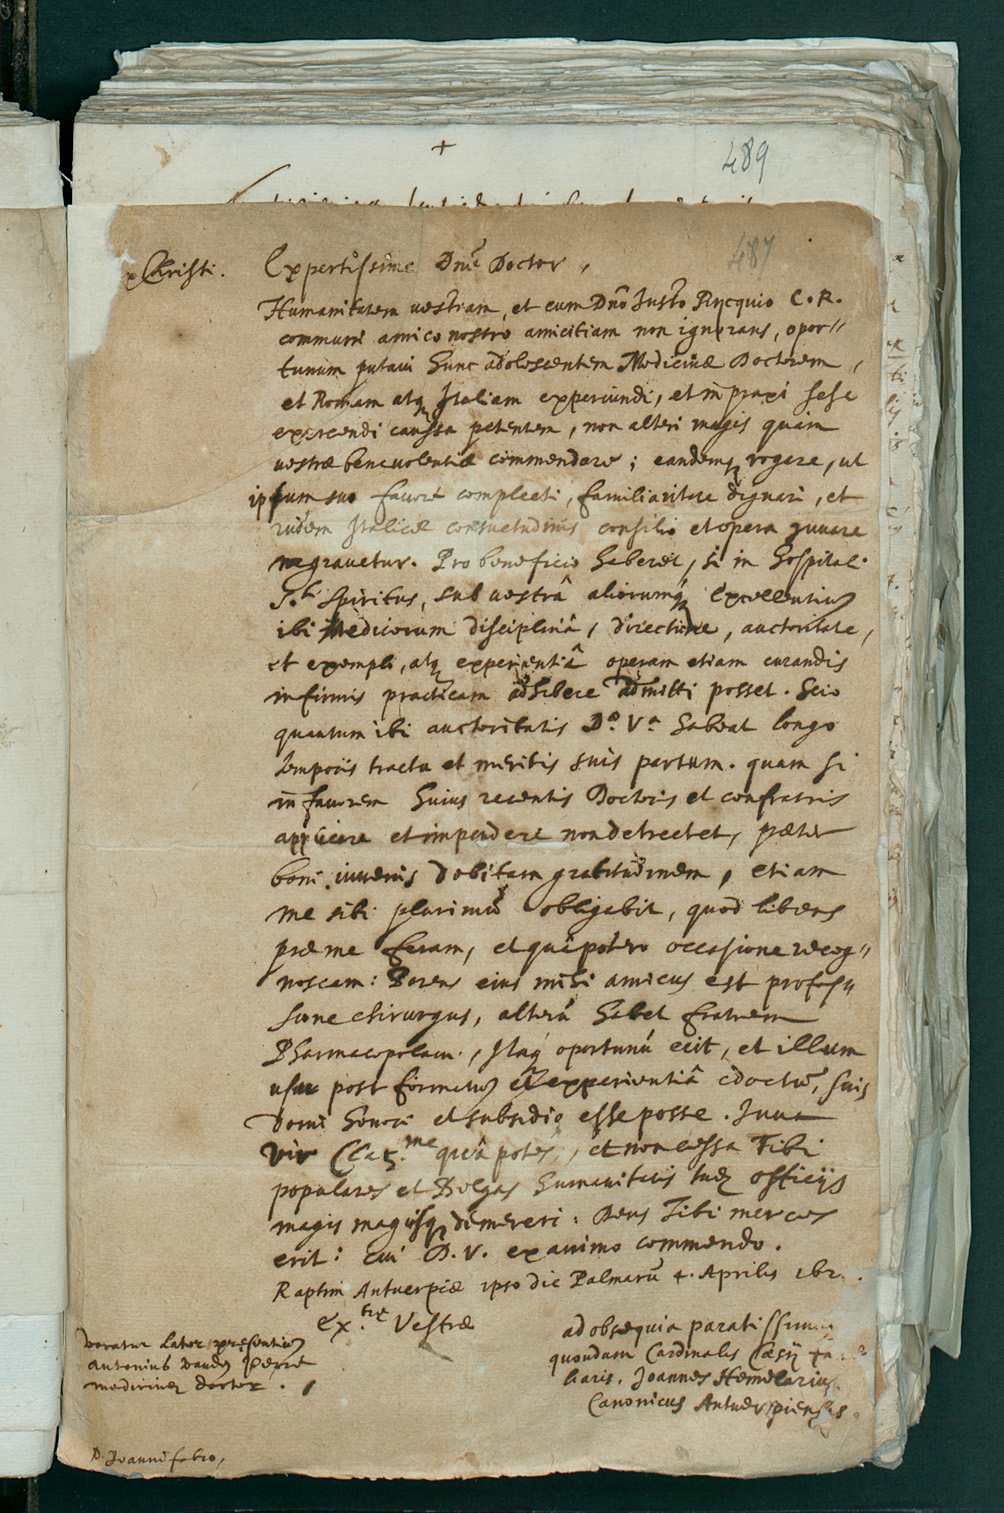 489
487
Christi.
Expertissime Dne Doctor,
Humanitatem vestram, et cum Dno Justo Rycquio C. R.
communi amico nostro amicitiam non ignorans, opor//
tunum putavi hunc adolescentem Medicinæ Doctorem,
et Romam atq Italiam experiundi, et in praxi sese
exercendi caussa petentem, non alteri magis quam
vestræ benevolentiæ commendare; eandemq rogare, ut
ipsum suo favore complecti, familiaritate dignari, et
rudem Italicæ consuetudinis consilio et opera juvare
ne gravetur. Pro beneficio haberet, si in Hospitali
S.ti Spiritus, sub vestrâ aliorumq Excellentium
ibi Medicorum disciplinâ, directione, auctoritate,
et exempli, atq experientiâ operam etiam curandis
infirmis practicam adhibere admitti posset. Scio
quantum ibi auctoritatis Do. Va. habeat longo
temporis tractu et meritis suis partum. quam si
in favorem huius recentis Doctoris et confratris
applicare et impendere non detrectet, præter
boni juvenis debitam gratitudinem, etiam
me sibi plurimum obligabit, quod libens
præ me feram, et quâ potero occasione recog//
noscam: Parens eius mihi amicus est profess//
ione chirurgus, alterum habet fratrem
Pharmacopolam, Itaq oportunum erit, et illum
usu post formatum experientiâ edoctum, suis
domi honori et subsidio esse posse. Juva
vir Clar.me quâ potes, et non cessa Tibi
populares et Belgas humanitatis tuæ officijs
magis magisq demereri: Deus Tibi merces
erit: cui D. V. ex animo commendo.
Raptim Antverpiæ ipso die Palmarum 4. Aprilis
Ex.tiæ Vestræ
ad obsequia paratissimus
quondam Cardinalis Cæsij
liaris, Joannes Hemelarius
Canonicus Antverpiensis.
vocatur Lator præsentium
Antonius
medicinæ doctor.
D. Joanni fabro,